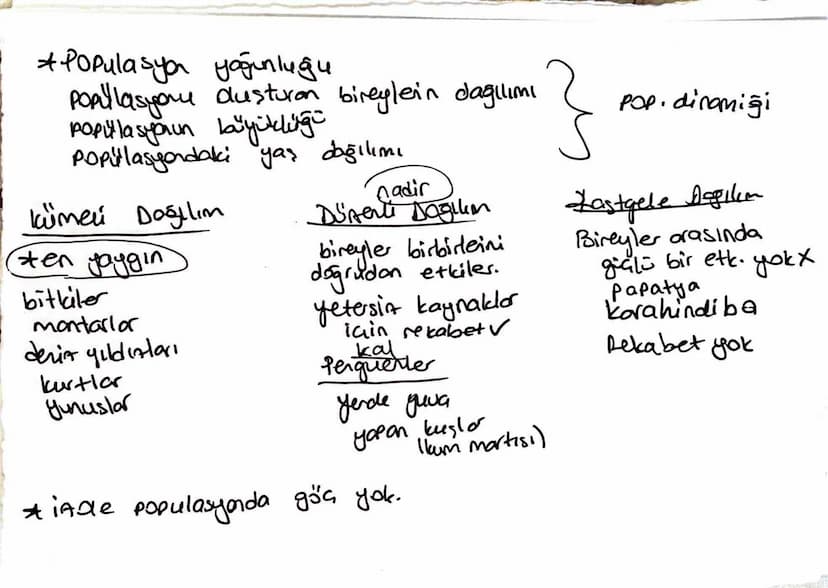 *Populasyon yoğunluğu
popülasyonu oluşturan bireylerin dağılımı
popülasyonun büyüklüğü
popülasyondaki yaş dağılımı
pop. dinamiği
Kümeli Dağılım
*en yaygın
bitkiler
mantarlar
deniz yıldızları
kurtlar
yunuslar
nadir
Düzenli Dağılım
bireyler birbirlerini
doğrudan etkiler.
yetersiz kaynaklar
için rekabet ✓
kral
Penguenler
yerde yuva
yapan kuşlar
(kum martısı)
Rastgele Dağılım
Bireyler arasında
güçlü bir etk. yok X
papatya
karahindiba
Rekabet yok
* populasyonda göç yok.